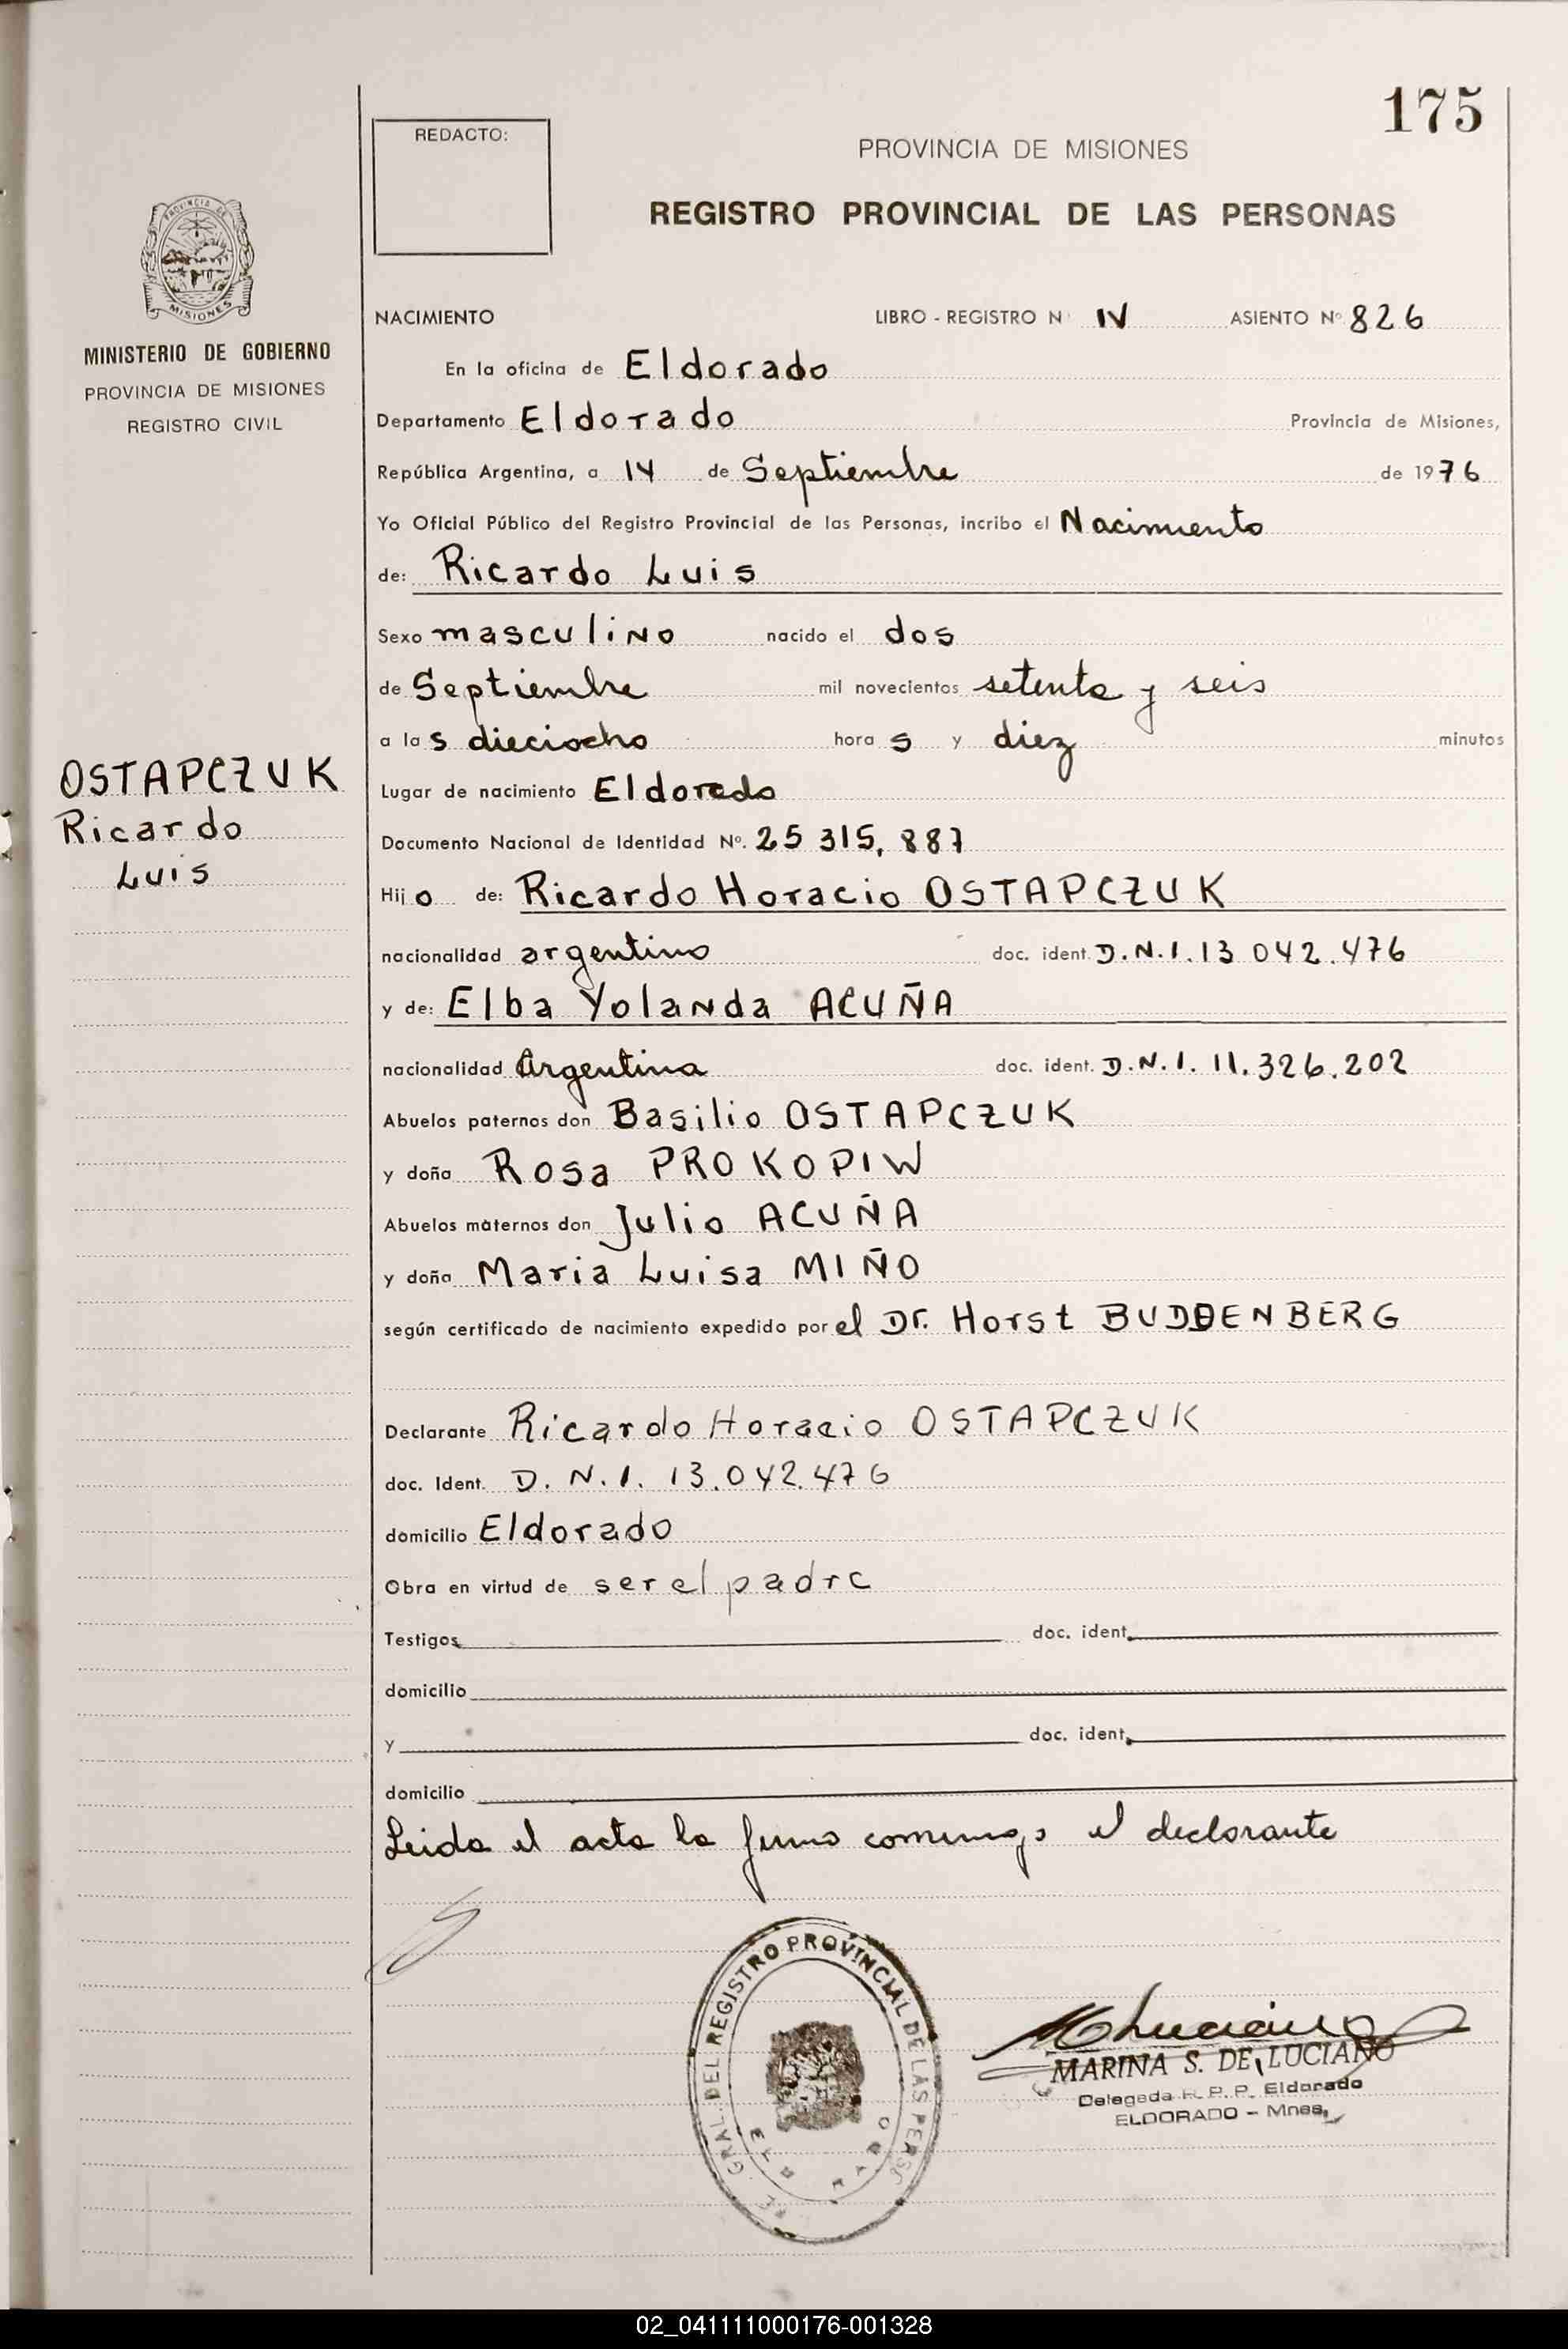 175
REDACTO:
PROVINCIA DE MISIONES
REGISTRO PROVINCIAL DE LAS PERSONAS
PROVINCIA DE
MISIONES
MINISTERIO DE GOBIERNO
PROVINCIA DE MISIONES
REGISTRO CIVIL
OSTAPCZUK
Ricardo
Luis
NACIMIENTO LIBRO - REGISTRO N IV ASIENTO Nº 826
En la oficina de Eldorado
Departamento Eldorado Provincia de Misiones,
República Argentina, a 14 de Septiembre de 1976
Yo Oficial Público del Registro Provincial de las Personas, incribo el Nacimiento
de: Ricardo Luis
Sexo masculino nacido el dos
de Septiembre mil novecientos setenta y seis
a las dieciocho horas y diez minutos
Lugar de nacimiento Eldorado
Documento Nacional de Identidad Nº. 25 315, 887
Hijo de: Ricardo Horacio OSTAPCZUK
nacionalidad argentino doc. ident. D.N.I. 13 042.476
y de: Elba Yolanda ACUÑA
nacionalidad Argentina doc. ident. D.N.I. 11.326.202
Abuelos paternos don Basilio OSTAPCZUK
y doña Rosa PROKOPIW
Abuelos maternos don Julio ACUÑA
y doña Maria Luisa MIÑO
según certificado de nacimiento expedido por el Dr. Horst BUDDENBERG
Declarante Ricardo Horacio OSTAPCZUK
doc. Ident. D.N.I. 13.042.476
domicilio Eldorado
Obra en virtud de ser el padre
Testigos doc. ident.
domicilio
y doc. ident.
domicilio
Leida el acta la firma conmigo el declarante
GRAL. DEL REGISTRO PROVINCIAL DE LAS PERS
MARINA S. DE LUCIANO
Delegada R. P. P. Eldorado
ELDORADO - Mnes.
02_041111000176-001328